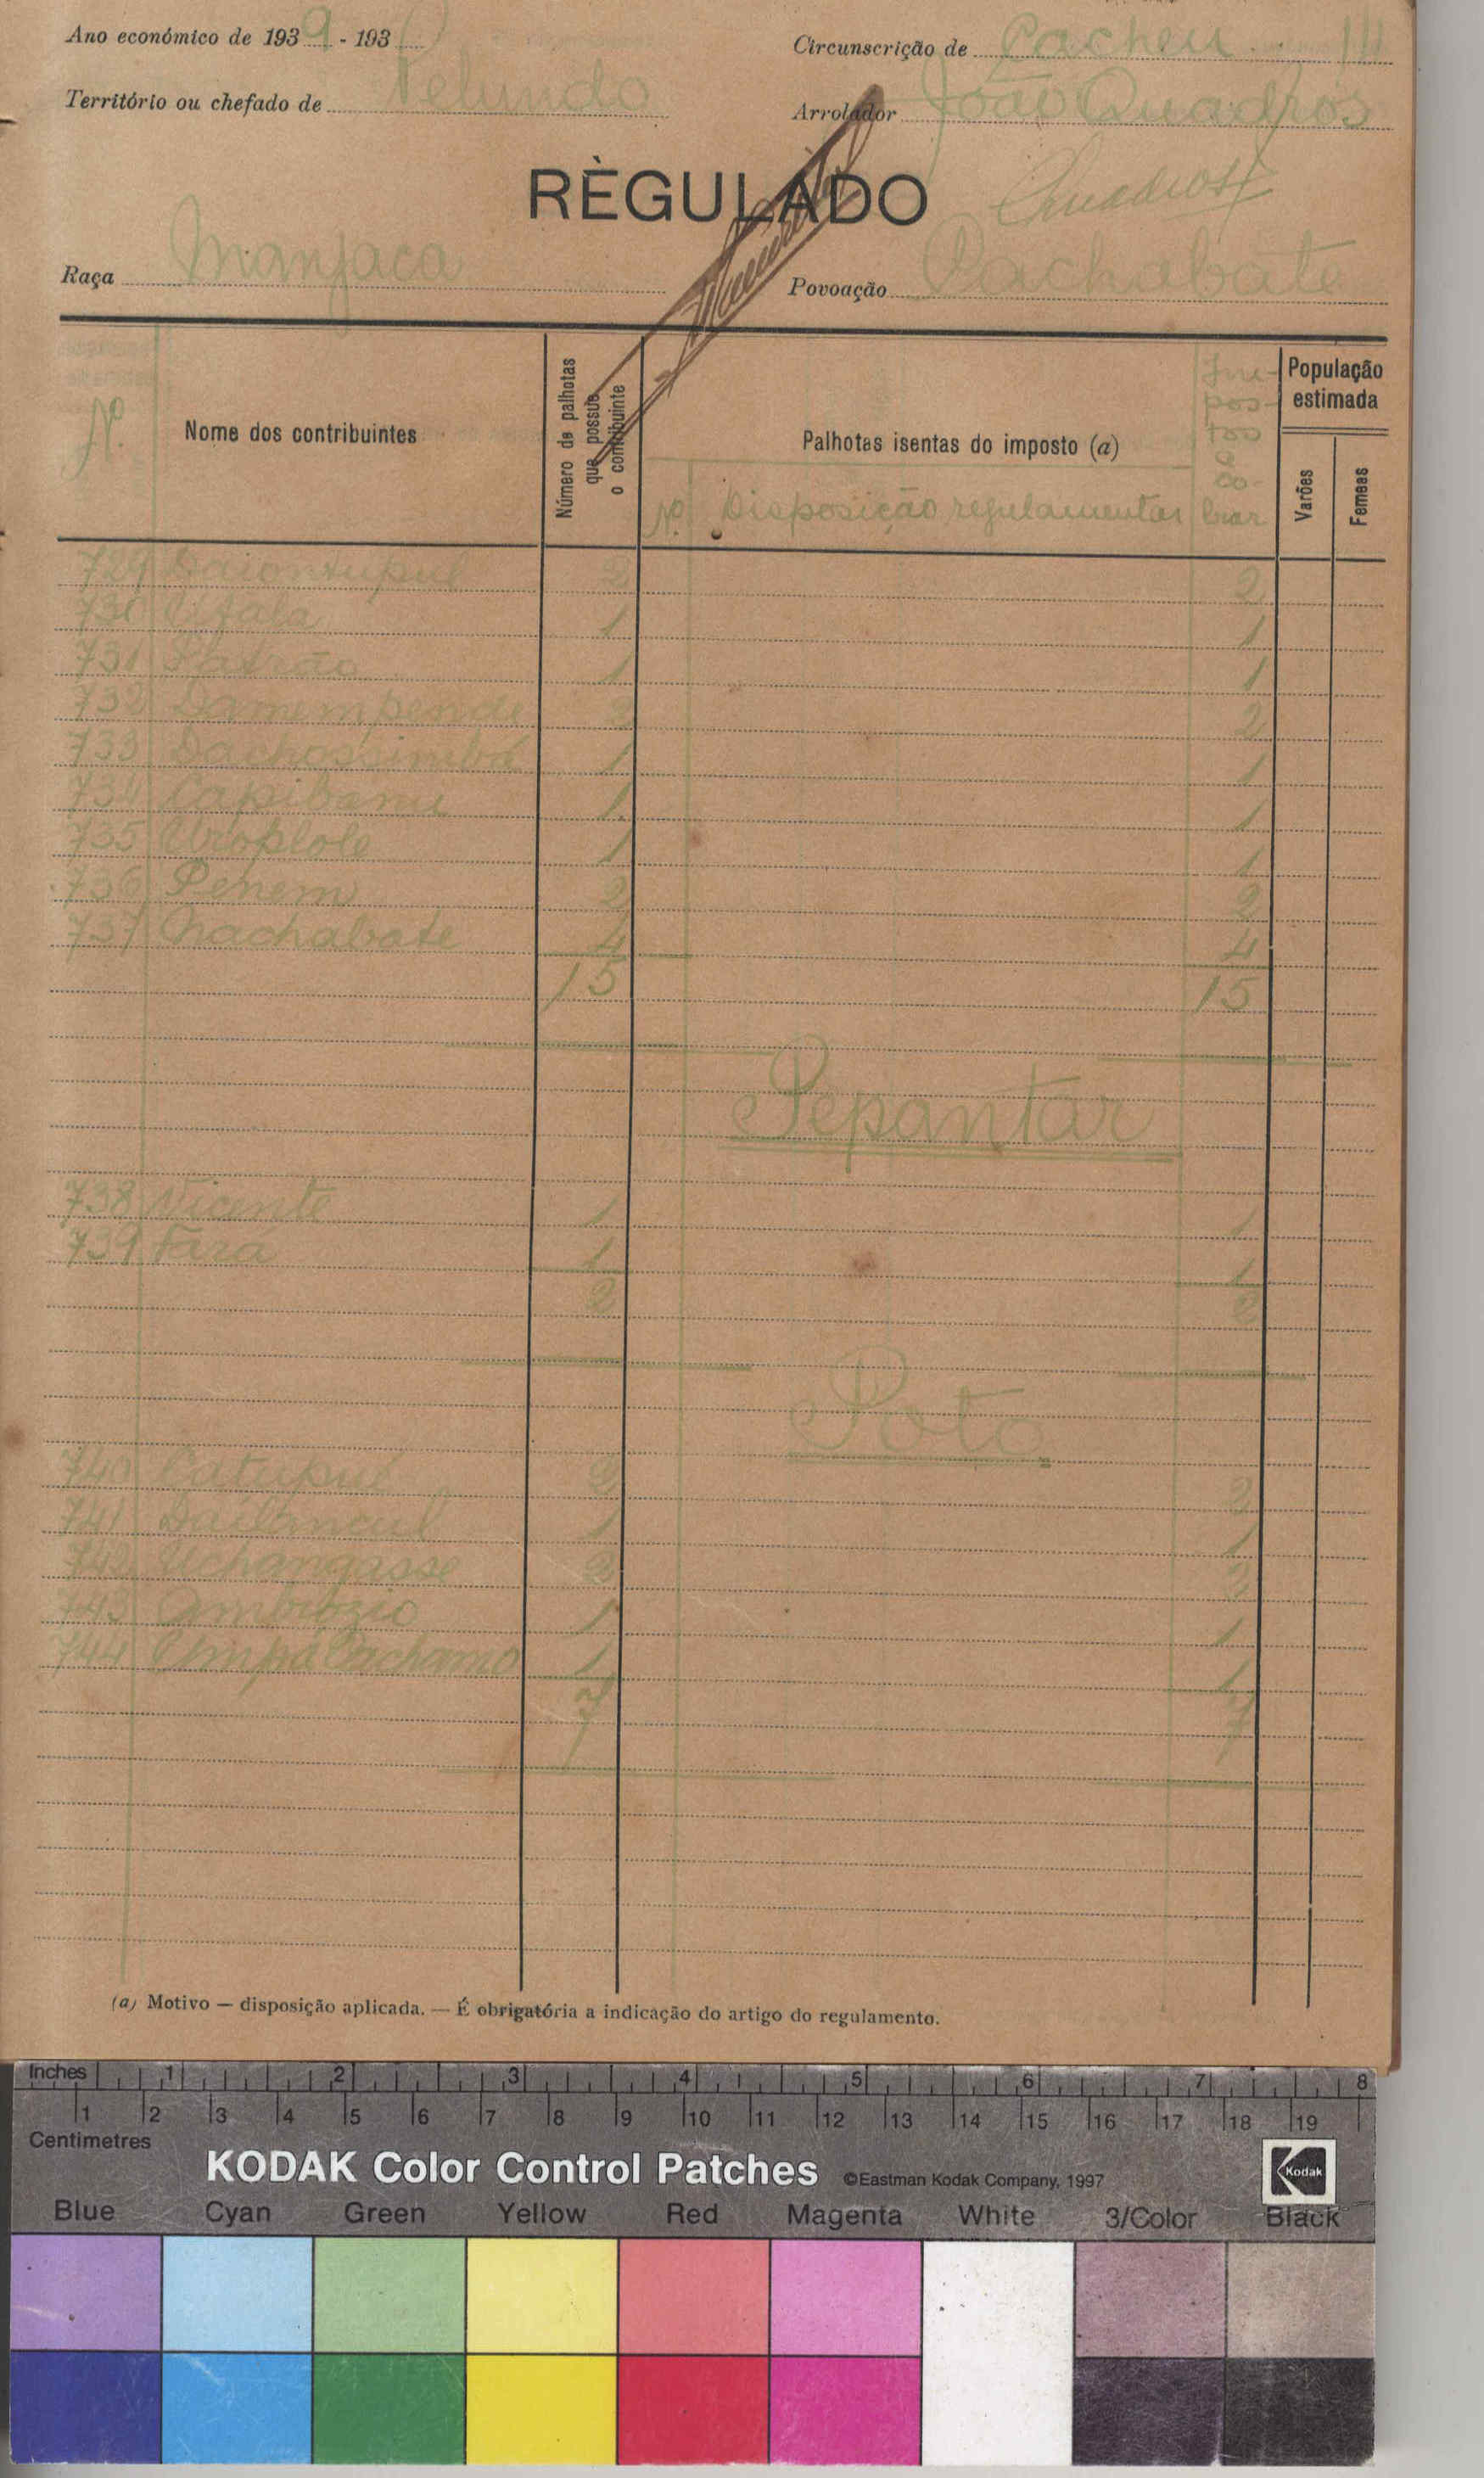 Ano económico de 1939 - 193
Circunscrição de Cacheu 111
Território ou chefado de Pelundo
Arrolador João Quadros
RÈGULADO
Quadros
Raça Manjaca
Povoação Pachabate
N.
Nome dos contribuintes
Número de palhotas que possue o contribuinte
Palhotas isentas do imposto (a)
Nº Disposição regulamentar
Impostos a cobrar
População estimada
Varões
Femeas
729 2 2
730 Utala 1 1
731 Patrão 1 1
732 Damempende 2 2
733 Dachossimba 1 1
734 Capibanu 1 1
735 Uroplole 1 1
736 Penem 2 2
737 Nachabate 4 4
15 15
Pepantar
738 Vicente 1 1
739 Fara 1 1
2 2
Poto
740 Catupul 2 2
741 1 1
742 Uchangasse 2 2
743 Ambrozio 1 1
744 Umpá Cachamo 1 1
7 7
(a) Motivo — disposição aplicada. — É obrigatória a indicação do artigo do regulamento.
Inches 1 2 3 4 5 6 7 8
1 2 3 4 5 6 7 8 9 10 11 12 13 14 15 16 17 18 19
Centimetres
KODAK Color Control Patches ©Eastman Kodak Company, 1997 Kodak
Blue Cyan Green Yellow Red Magenta White 3/Color Black